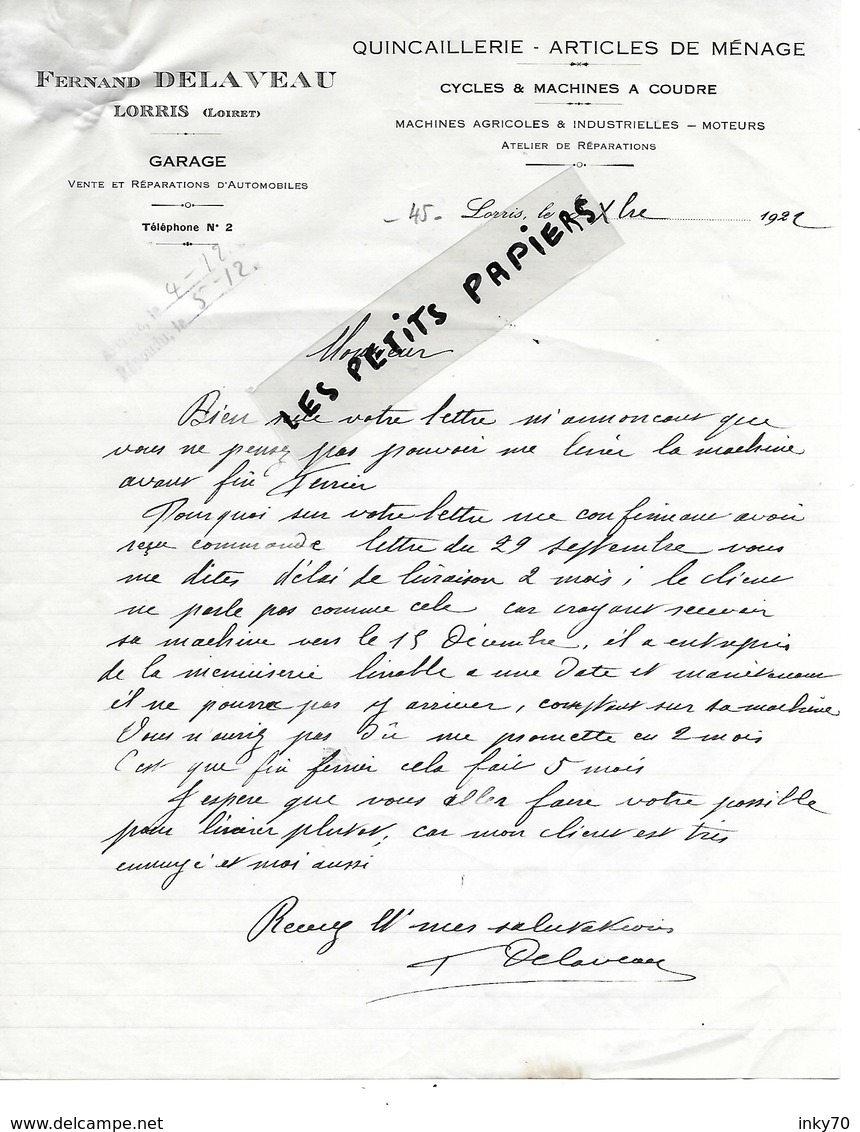 FERNAND DELAVEAU
LORRIS (LOIRET)
GARAGE
VENTE ET RÉPARATIONS D'AUTOMOBILES
Téléphone N° 2
QUINCAILLERIE - ARTICLES DE MÉNAGE
CYCLES & MACHINES A COUDRE
MACHINES AGRICOLES & INDUSTRIELLES — MOTEURS
ATELIER DE RÉPARATIONS
- 45 - Lorris, le Xbre 1922
4-12.
Répondu, le 5-12.
LES PETITS PAPIERS
Monsieur
Bien reçu votre lettre m'annoncant que
vous ne pensez pas pouvoir me livrer la machine
avant fin Fevrier
Pourquoi sur votre lettre me confirmant avoir
reçu commande lettre du 29 septembre vous
me dites délai de livraison 2 mois ; le client
ne parle pas comme cela car croyant recevoir
sa machine vers le 15 Décembre, il a entrepris
de la menuiserie livrable a une date et maintenant
il ne pourra pas y arriver, comptant sur sa machine
Vous n'auriez pas dû me promettre en 2 mois
C'est que fin fevrier cela fait 5 mois
J'espere que vous allez faire votre possible
pour livrer plutot, car mon client est très
ennuyé et moi aussi
Recevez Mr mes salutations
F Delaveau
www.delcampe.net
inky70